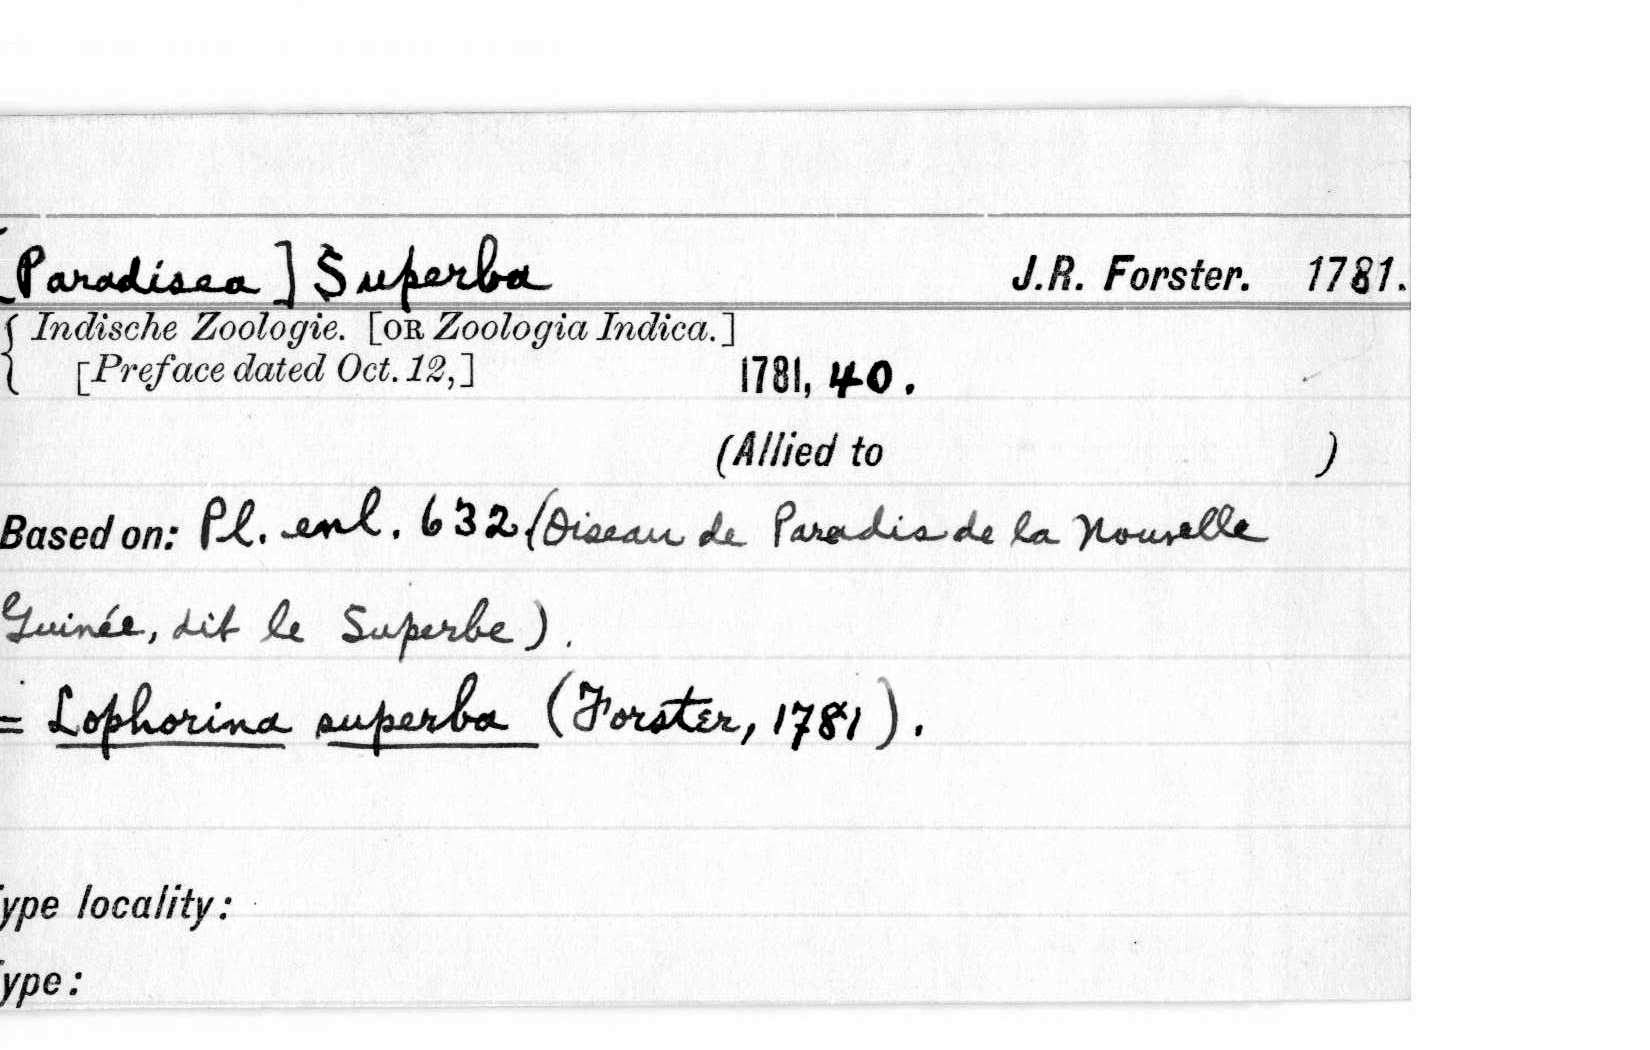 [Paradisea] Superba J.R. Forster. 1781.
{ Indische Zoologie. [OR Zoologia Indica.]
[Preface dated Oct. 12,] 1781, 40.
(Allied to )
Based on: Pl. enl. 632 (Oiseau de Paradis de la Nouvelle
Guinée, dit le Superbe).
= Lophorina superba (Forster, 1781).
ype locality:
ype: